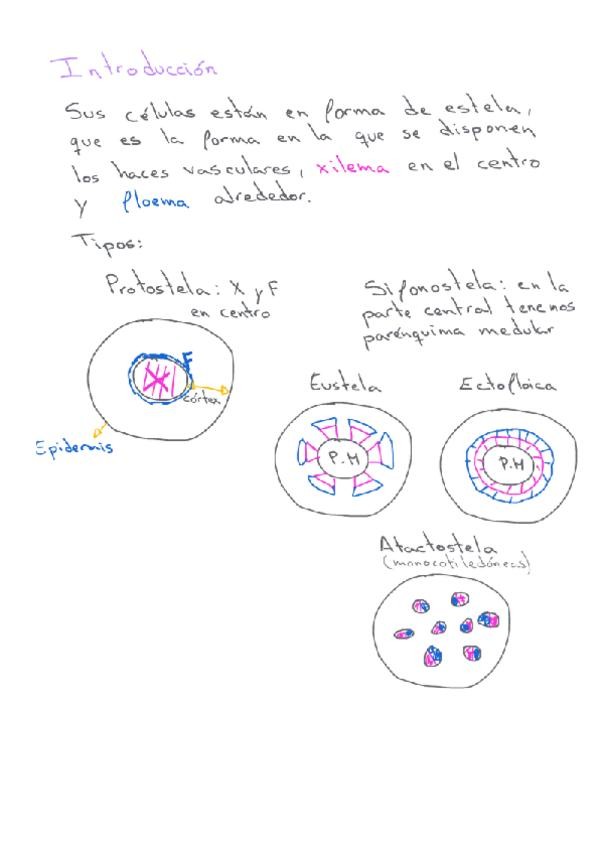 Introducción
Sus células están en forma de estela,
que es la forma en la que se disponen
los haces vasculares, xilema en el centro
y floema alrededor.
Tipos:
Protostela: X y F
en centro
F
X
córtex
Epidermis
Sifonostela: en la
parte central tenemos
parénquima medular
Eustela
P.M
Ectofloica
P.M
Atactostela
(monocotiledóneas)